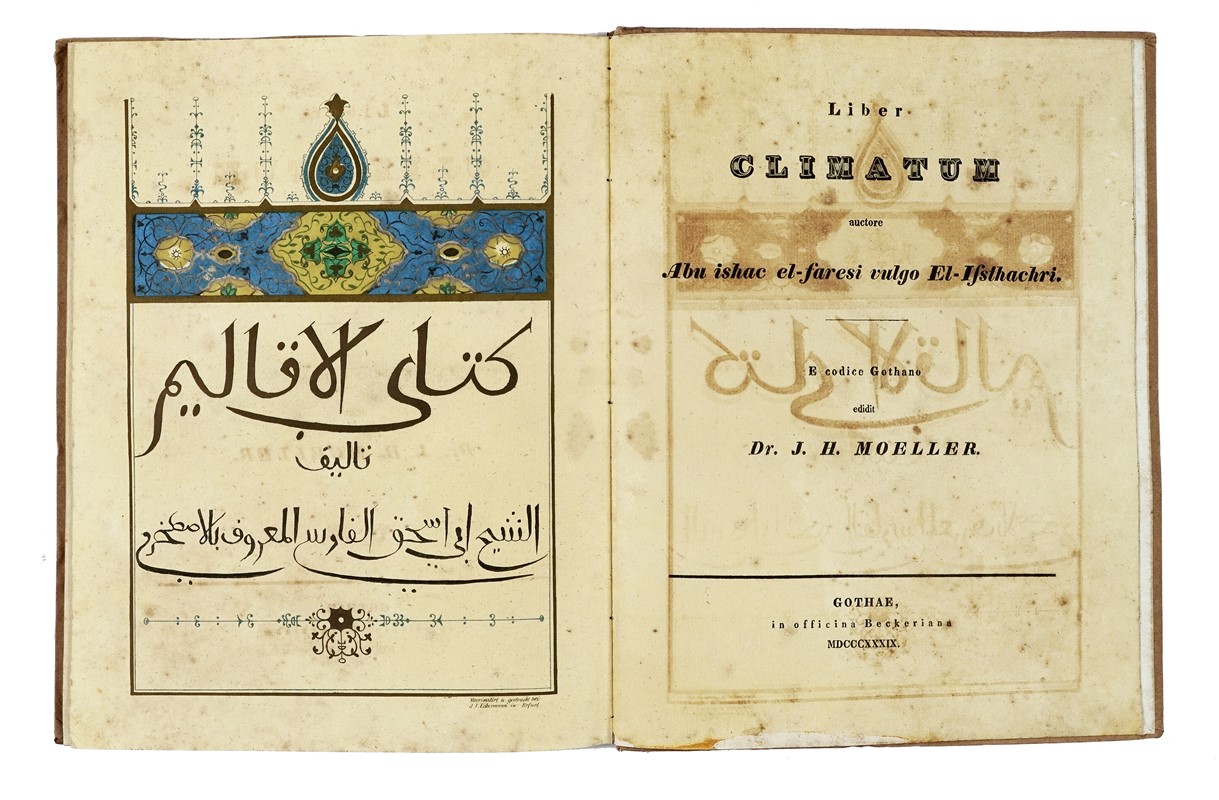 كتاب الاقاليم
تاليف
الشيخ ابي اسحق الفارسي المعروف بالاصطخري
J. F. in Erfurt
Liber
CLIMATUM
auctore
Abu ishac el-faresi vulgo El-Iſsthachri.
E codice Gothano
edidit
Dr. J. H. MOELLER.
GOTHAE,
in officina Beckeriana
MDCCCXXXIX.